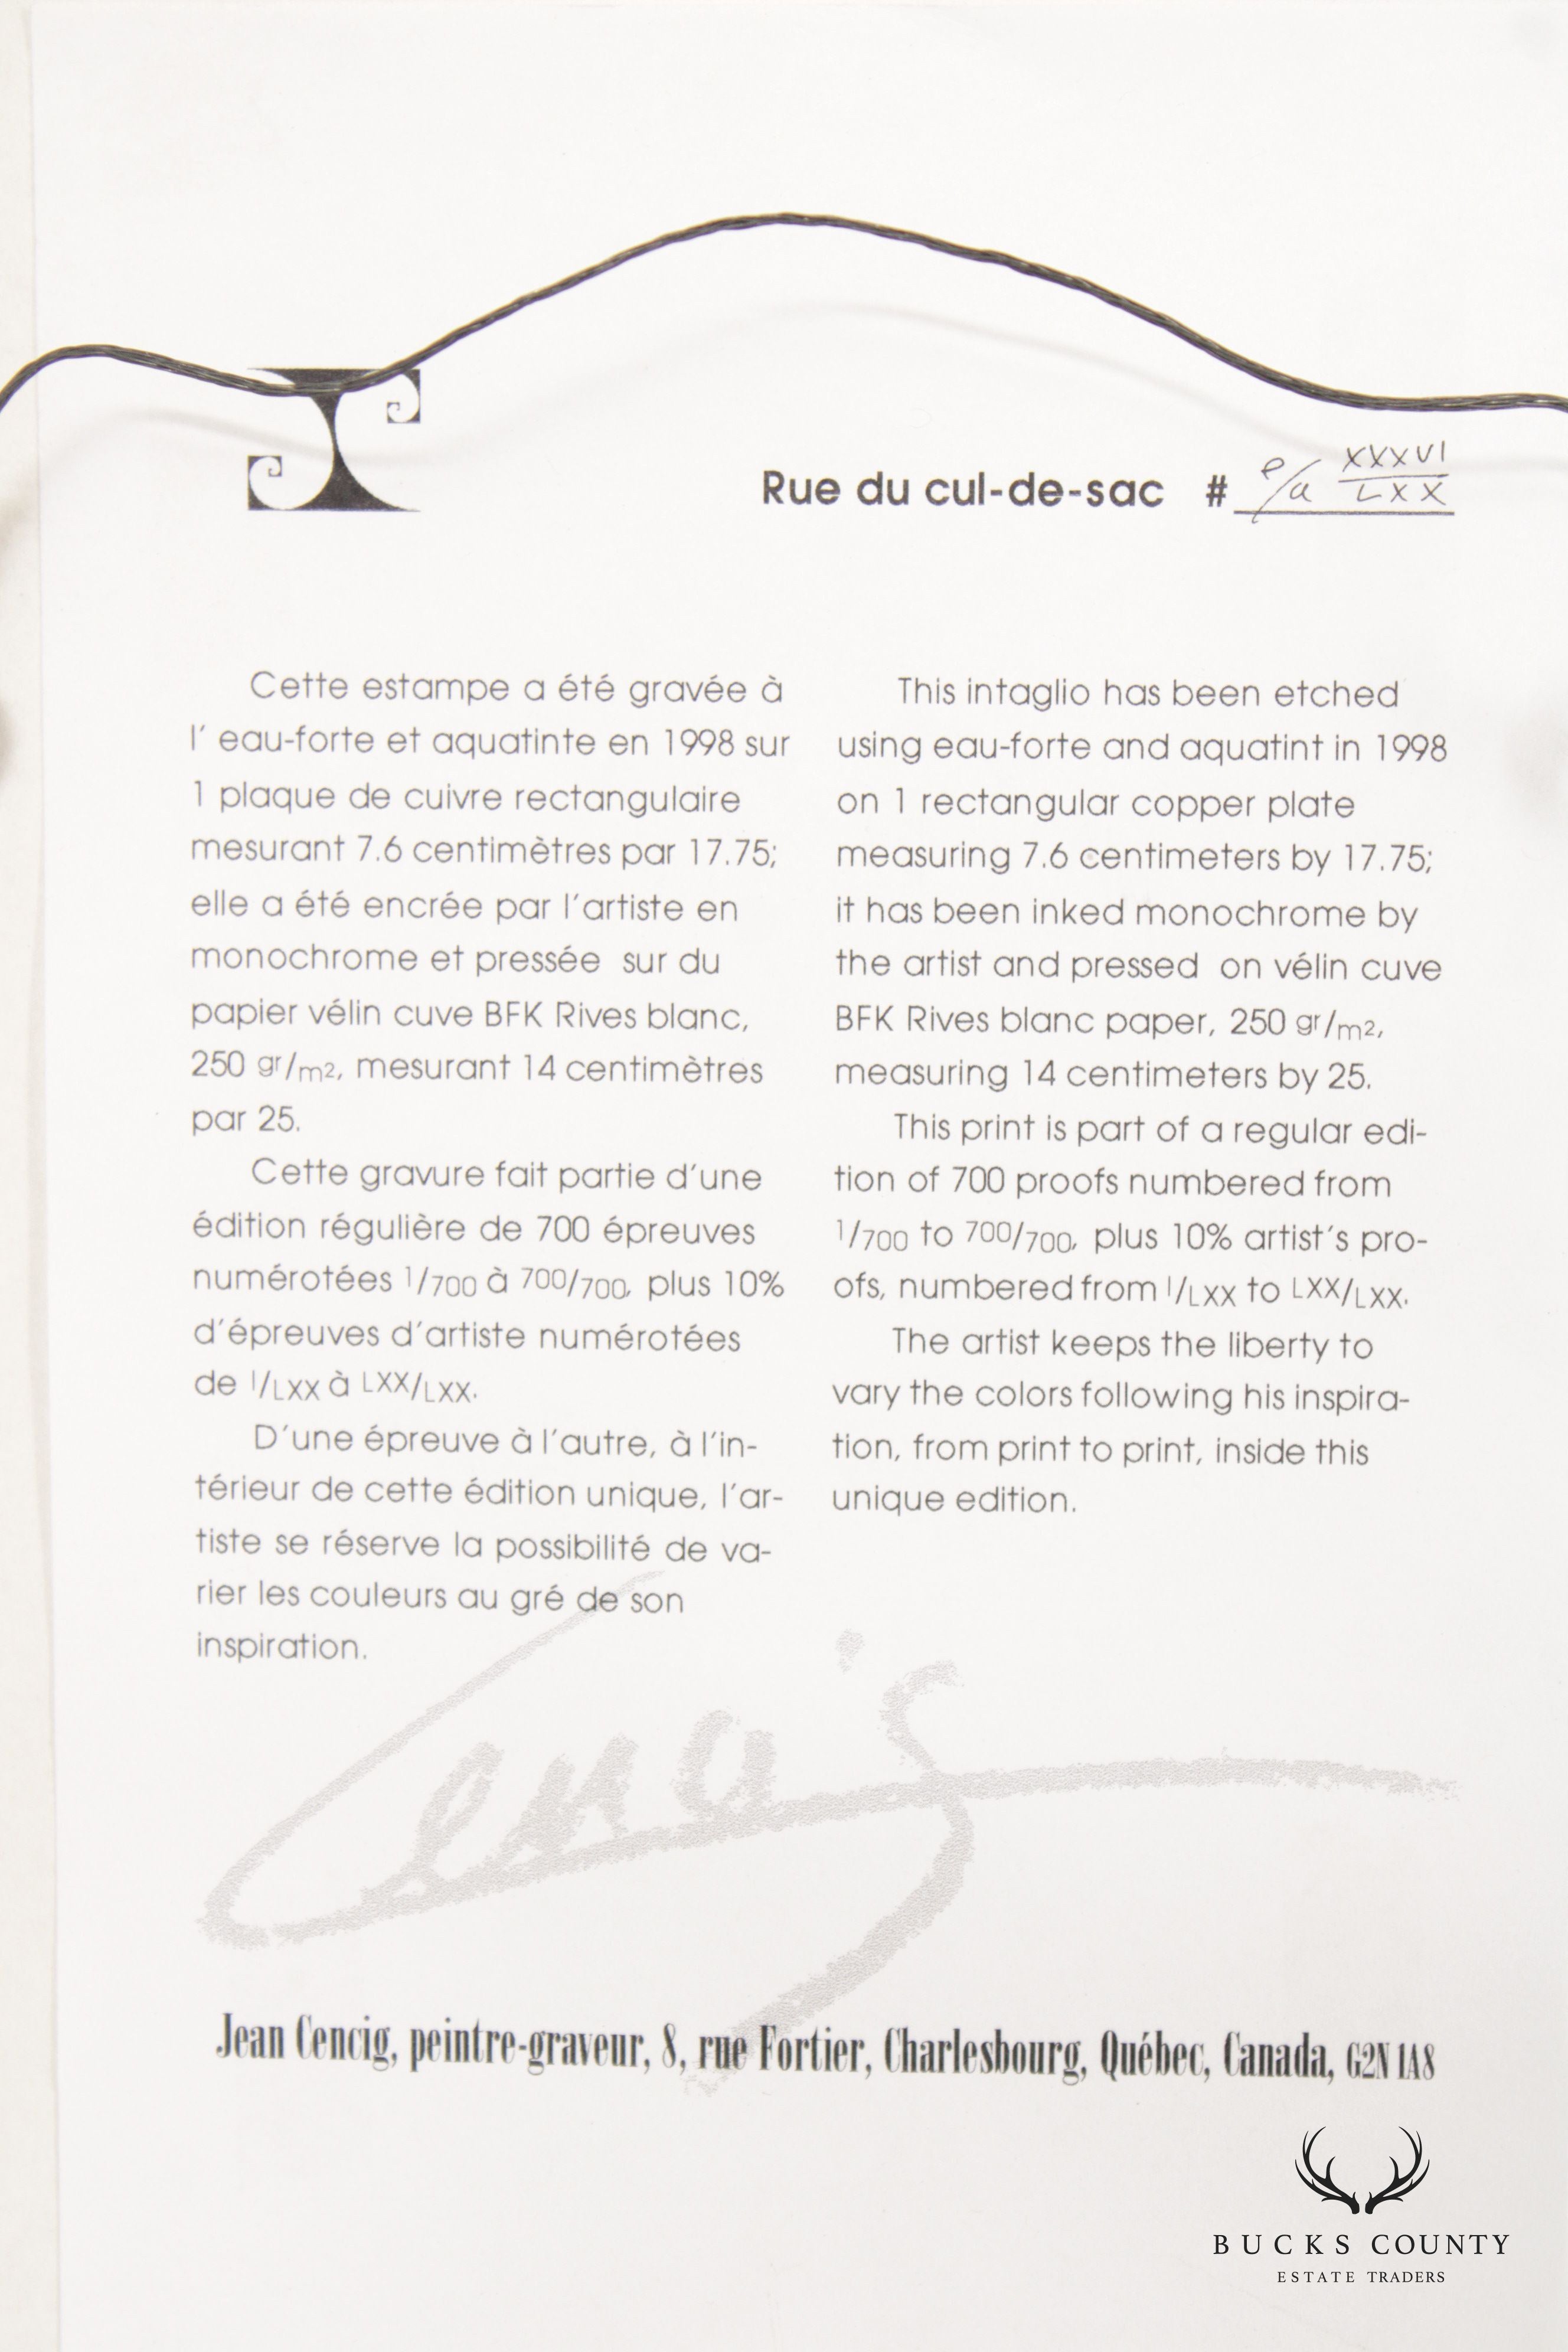 Rue du cul-de-sac # e/a XXXVI/LXX
Cette estampe a été gravée à
l' eau-forte et aquatinte en 1998 sur
1 plaque de cuivre rectangulaire
mesurant 7.6 centimètres par 17.75;
elle a été encrée par l'artiste en
monochrome et pressée sur du
papier vélin cuve BFK Rives blanc,
250 gr/m2, mesurant 14 centimètres
par 25.
Cette gravure fait partie d'une
édition régulière de 700 épreuves
numérotées 1/700 à 700/700, plus 10%
d'épreuves d'artiste numérotées
de I/LXX à LXX/LXX.
D'une épreuve à l'autre, à l'in-
térieur de cette édition unique, l'ar-
tiste se réserve la possibilité de va-
rier les couleurs au gré de son
inspiration.
This intaglio has been etched
using eau-forte and aquatint in 1998
on 1 rectangular copper plate
measuring 7.6 centimeters by 17.75;
it has been inked monochrome by
the artist and pressed on vélin cuve
BFK Rives blanc paper, 250 gr/m2,
measuring 14 centimeters by 25.
This print is part of a regular edi-
tion of 700 proofs numbered from
1/700 to 700/700, plus 10% artist's pro-
ofs, numbered from I/LXX to LXX/LXX.
The artist keeps the liberty to
vary the colors following his inspira-
tion, from print to print, inside this
unique edition.
Jean Cencig, peintre-graveur, 8, rue Fortier, Charlesbourg, Québec, Canada, G2N 1A8
BUCKS COUNTY
ESTATE TRADERS